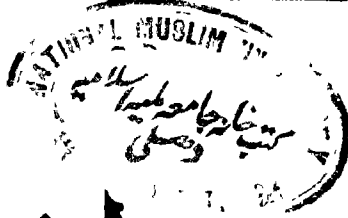 NATIONAL MUSLIM UN
کتب خانہ جامعہ ملیہ اسلامیہ
دہلی